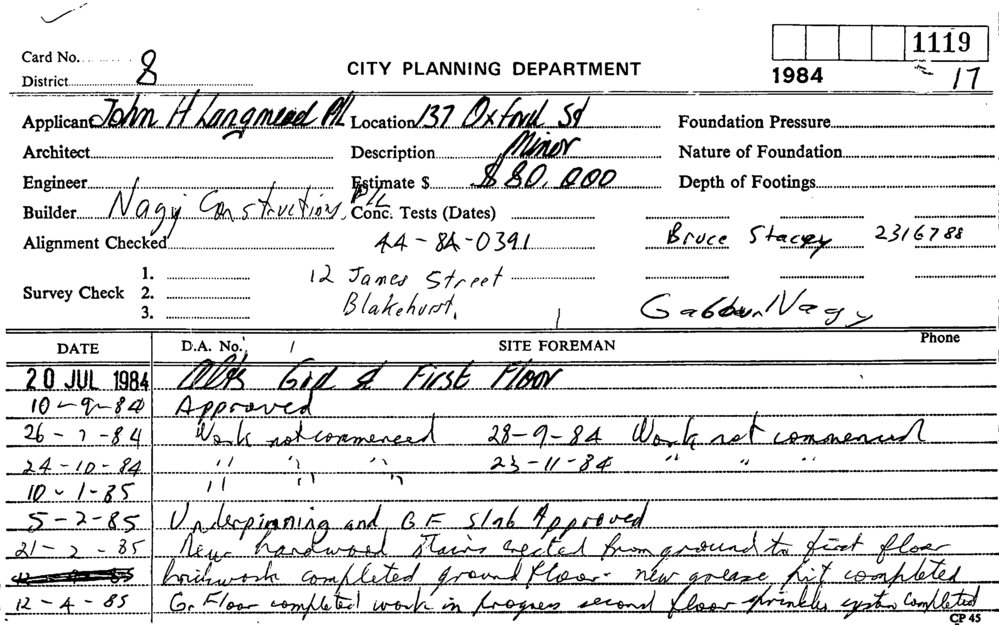 Card No. 8 CITY PLANNING DEPARTMENT 1119
District 1984 17
Applicant John H Langmead P/L Location 137 Oxford St Foundation Pressure
Architect Description Minor Nature of Foundation
Engineer Estimate $ $80,000 Depth of Footings
Builder Nagy Constructions, P/L Conc. Tests (Dates)
Alignment Checked 44-84-0391 Bruce Stacey 2316788
Survey Check 1. 12 James Street
2. Blakehurst,
3. Nagy
DATE D.A. No. SITE FOREMAN Phone
20 JUL 1984 Alts Gnd & First Floor
10-9-84 Approved
26-7-84 Work not commenced 28-9-84 Work not commenced
24-10-84 " " " 23-11-84 " " "
10-1-85 " "
5-2-85 Underpinning and G.F Slab Approved
21-2-85 New hardwood stairs erected from ground to first floor
brickwork completed ground floor - new grease pit completed
12-4-85 Gr. Floor completed work in progress second floor sprinkler system completed
CP 45